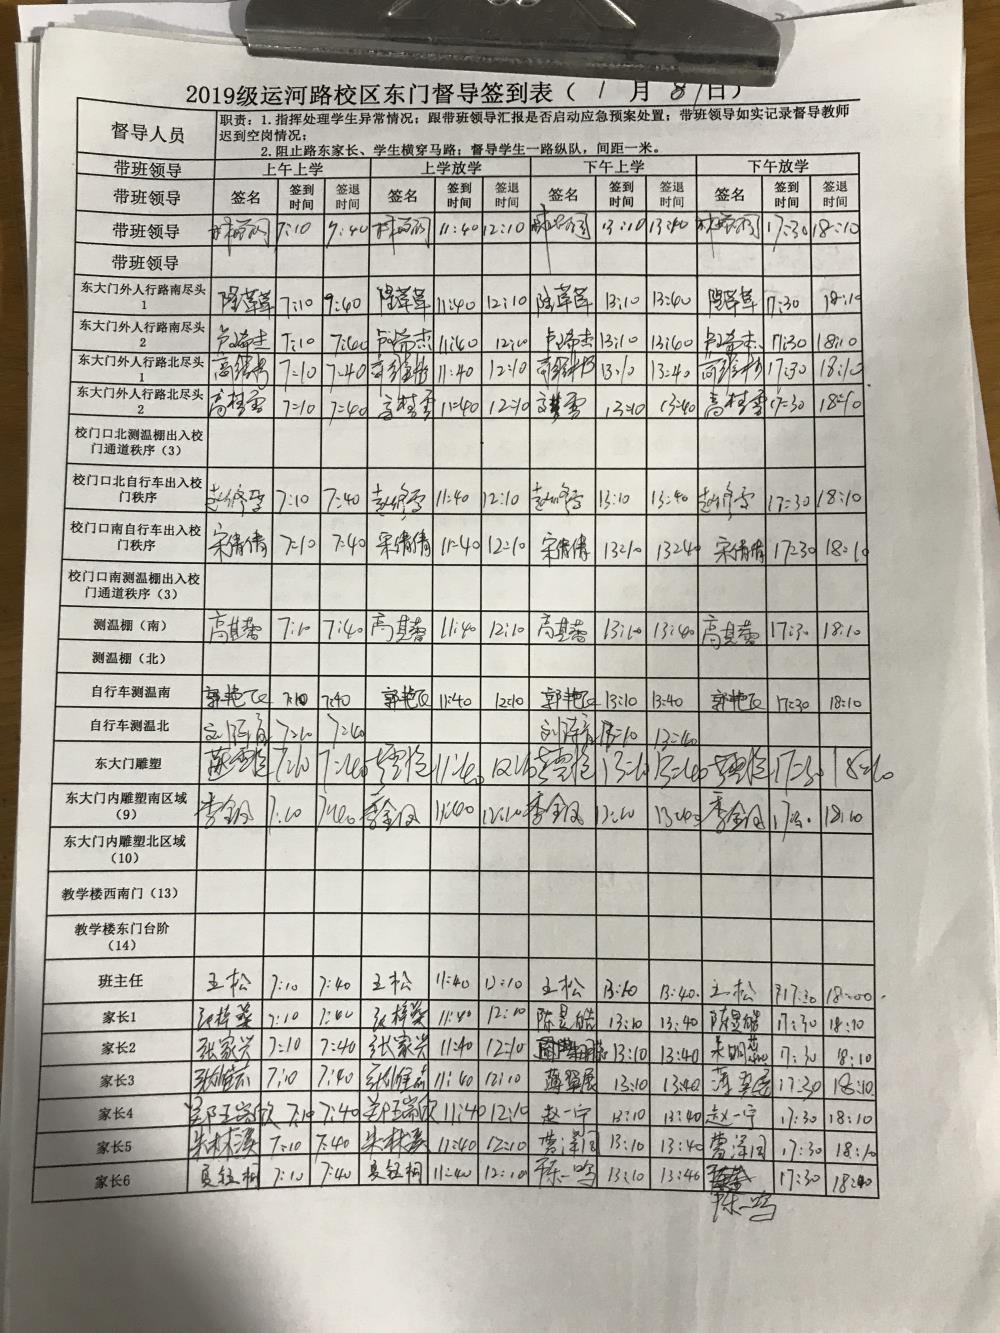 2019级运河路校区东门督导签到表（1月8日）
督导人员 职责：1. 指挥处理学生异常情况；跟带班领导汇报是否启动应急预案处置；带班领导如实记录督导教师
迟到空岗情况；
2. 阻止路东家长、学生横穿马路；督导学生一路纵队，间距一米。
带班领导 上午上学 上午放学 下午上学 下午放学
带班领导 签名 签到时间 签退时间 签名 签到时间 签退时间 签名 签到时间 签退时间 签名 签到时间 签退时间
带班领导 7:10 11:40 12:10 13:10 13:40 17:30 18:10
带班领导
东大门外人行路南尽头1 7:10 9:40 11:40 12:10 13:10 13:40 17:30 18:10
东大门外人行路南尽头2 卢希杰 7:10 7:40 卢希杰 11:40 12:10 卢希杰 13:10 13:40 卢希杰 17:30 18:10
东大门外人行路北尽头1 7:10 7:40 11:40 12:10 13:10 13:40 17:30 18:10
东大门外人行路北尽头2 高桂雪 7:10 7:40 高桂雪 11:40 12:10 高桂雪 13:10 13:40 高桂雪 17:30 18:10
校门口北测温棚出入校门通道秩序（3）
校门口北自行车出入校门秩序 7:10 7:40 11:40 12:10 13:10 13:40 17:30 18:10
校门口南自行车出入校门秩序 宋倩倩 7:10 7:40 宋倩倩 11:40 12:10 宋倩倩 13:10 13:40 宋倩倩 17:30 18:10
校门口南测温棚出入校门通道秩序（3）
测温棚（南） 高其蕾 7:10 7:40 高其蕾 11:40 12:10 高其蕾 13:10 13:40 高其蕾 17:30 18:10
测温棚（北）
自行车测温南 7:10 7:40 11:40 12:10 13:10 13:40 17:30 18:10
自行车测温北 7:10 7:40 13:10 13:40
东大门雕塑 7:10 7:40 11:40 12:10 13:10 13:40 17:30 18:10
东大门内雕塑南区域（9） 7:10 7:40 11:40 12:10 13:10 13:40 18:10
东大门内雕塑北区域（10）
教学楼西南门（13）
教学楼东门台阶（14）
班主任 王松 7:10 7:40 王松 11:40 12:10 王松 13:10 13:40 王松 17:30 18:00
家长1 张梓蓁 7:10 7:40 张梓蓁 11:40 12:10 陈昱皓 13:10 13:40 陈昱皓 17:30 18:10
家长2 张家兴 7:10 7:40 张家兴 11:40 12:10 13:10 13:40 17:30 18:10
家长3 7:10 7:40 11:40 12:10 13:10 13:40 17:30 18:10
家长4 郑王崇欣 7:10 7:40 郑王崇欣 11:40 12:10 赵一宁 13:10 13:40 赵一宁 17:30 18:10
家长5 朱林溪 7:10 7:40 朱林溪 11:40 12:10 曹泽润 13:10 13:40 曹泽润 17:30 18:10
家长6 夏钰桐 7:10 7:40 夏钰桐 11:40 12:10 陈一鸣 13:10 13:40 17:30 18:10
陈一鸣